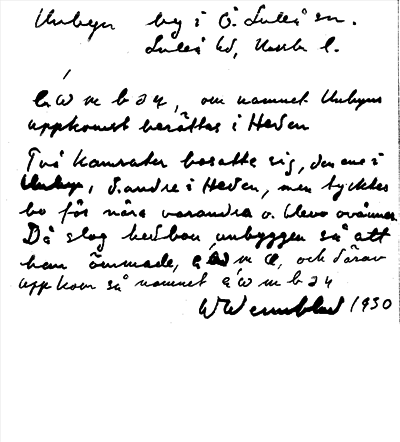 Unbyn by i Ö. Luleå sn.
Luleå td, Norrb. l.
om namnet Unbyns
uppkomst berättas i Heden
Två kamrater bosatte sig, den ene i
Unbyn, d. andre i Heden, men tycktes
bo för nära varandra o. blevo ovänner
Då slog hedbon unbyggen så att
han ömmade, och därav
uppkom så namnet
W Wennblad 1930